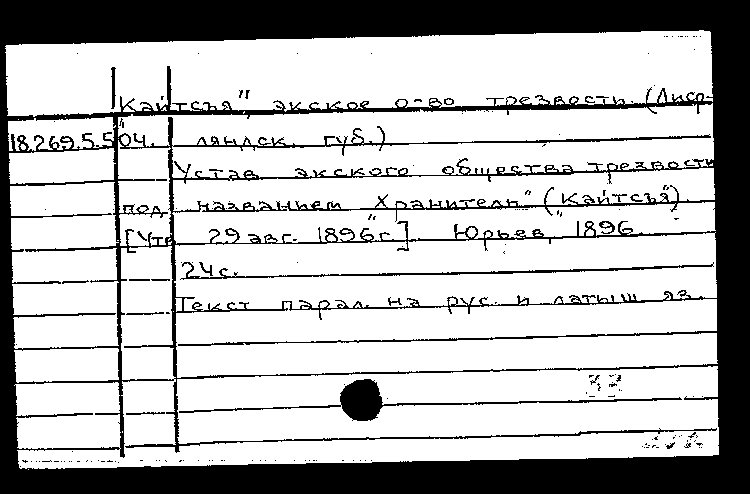 "Кайтсъя", экское о-во трезвости (Лиф-
18.269.5.504. ляндск. губ.)
Устав экского общества трезвости
под названием "Хранитель" ("Кайтсъя").
[Утв. 29 авг. 1896 г.]. Юрьев, 1896.
24 с.
Текст парал. на рус. и латыш. яз.
33